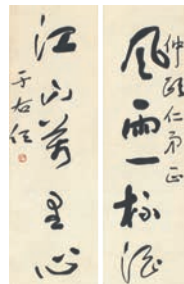 仲頤仁弟正
風雨一杯酒
江山萬里心
于右任